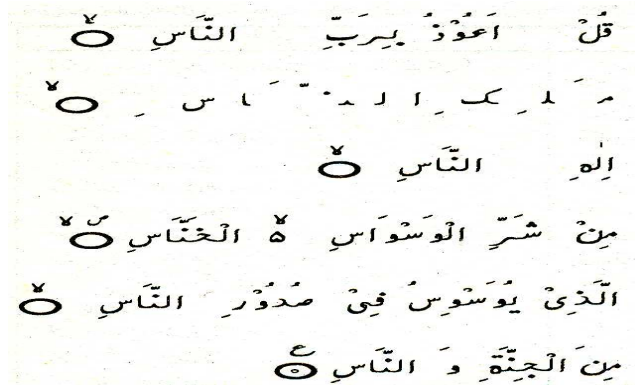 قُلْ اَعُوْذُ بِرَبِّ النَّاسِ ۙ
مَلِكِ النَّاسِ ۙ
اِلٰهِ النَّاسِ ۙ
مِنْ شَرِّ الْوَسْوَاسِ ۙ۵ الْخَنَّاسِ ۙص
الَّذِیْ یُوَسْوِسُ فِیْ صُدُوْرِ النَّاسِ ۙ
مِنَ الْجِنَّةِ وَ النَّاسِ ع